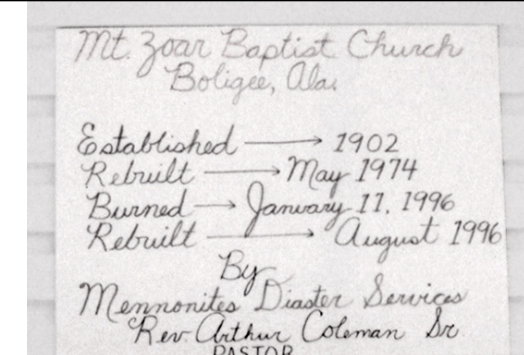 Mt. Zoar Baptist Church
Boligee, Ala.
Established → 1902
Rebuilt → May 1974
Burned → January 11, 1996
Rebuilt → August 1996
By
Mennonites Diaster Services
Rev. Arthur Coleman Sr.
PASTOR